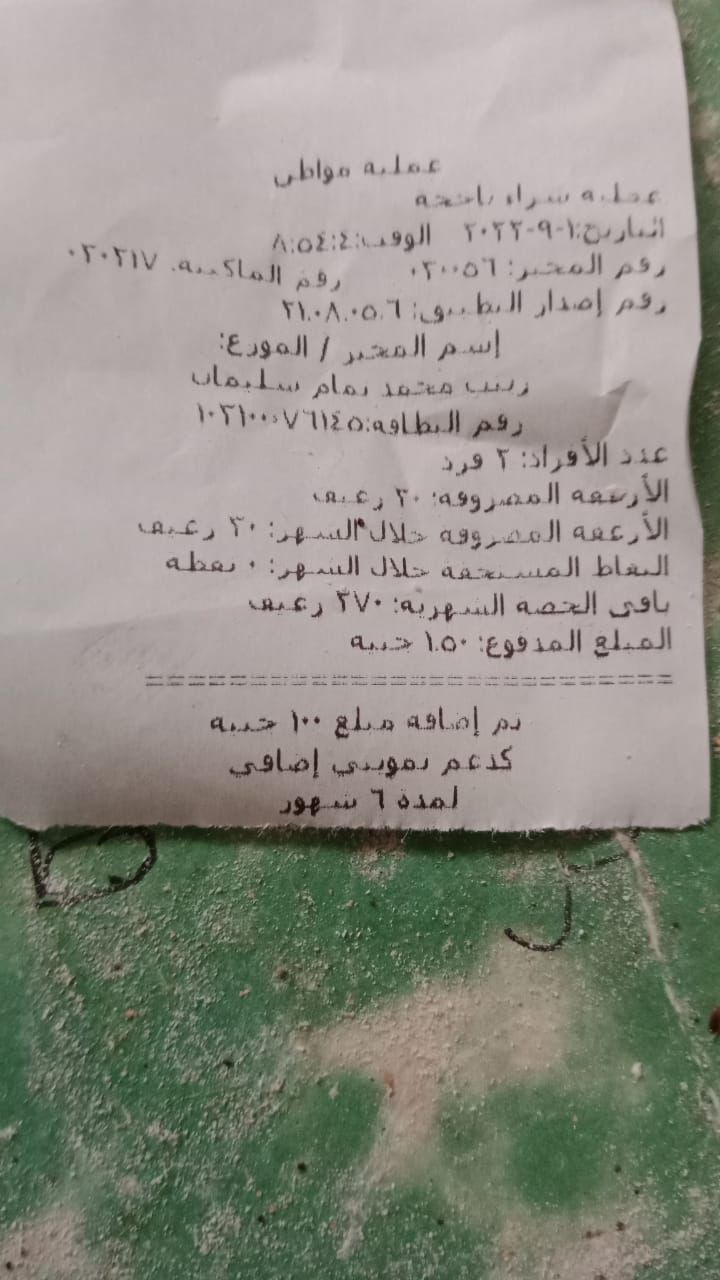 عملية مواطن
عملية شراء ناجحة
التاريخ:١-٩-٢٠٢٢ الوقت:٨:٥٤:٤
رقم المخبز: ٠٢٠٠٥٦ رقم الماكينة: ٠٢٠٢١٧
رقم إصدار التطبيق: ٢١.٠٨.٠٥.٦
إسم المخبز / المودع:
زينب محمد تمام سليمان
رقم البطاقة:
عدد الأفراد: ٢ فرد
الأرغفة المصروفة: ٣٠ رغيف
الأرغفة المصروفة خلال الشهر: ٣٠ رغيف
النقاط المستحقة خلال الشهر: ٠ نقطة
باقى الحصة الشهرية: ٢٧٠ رغيف
المبلغ المدفوع: ١.٥٠ جنيه
==============================
تم إضافة مبلغ ١٠٠ جنيه
كدعم تمويني إضافي
لمدة ٦ شهور